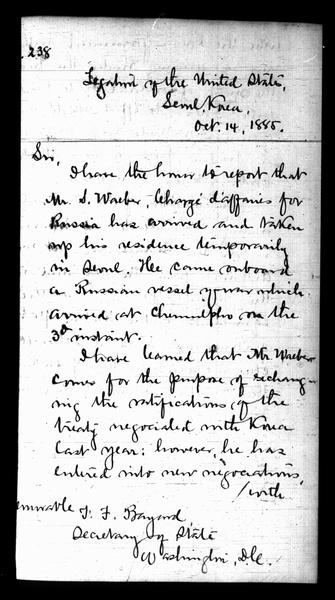 238
Legation of the United States,
Seoul, Korea,
Oct. 14, 1885.
Sir,
I have the honor to report that
Mr. S. Waeber, Chargé d'affaires for
Russia has arrived and taken
up his residence temporarily
in Seoul. He came onboard
a Russian vessel of war which
arrived at Chemulpho on the
3d instant.
I have learned that Mr. Waeber
comes for the purpose of exchang-
ing the ratifications of the
treaty negociated with Korea
last year; however, he has
entered into new negociations,
/with
T. F. Bayard,
Secretary of State
Washington, D.C.